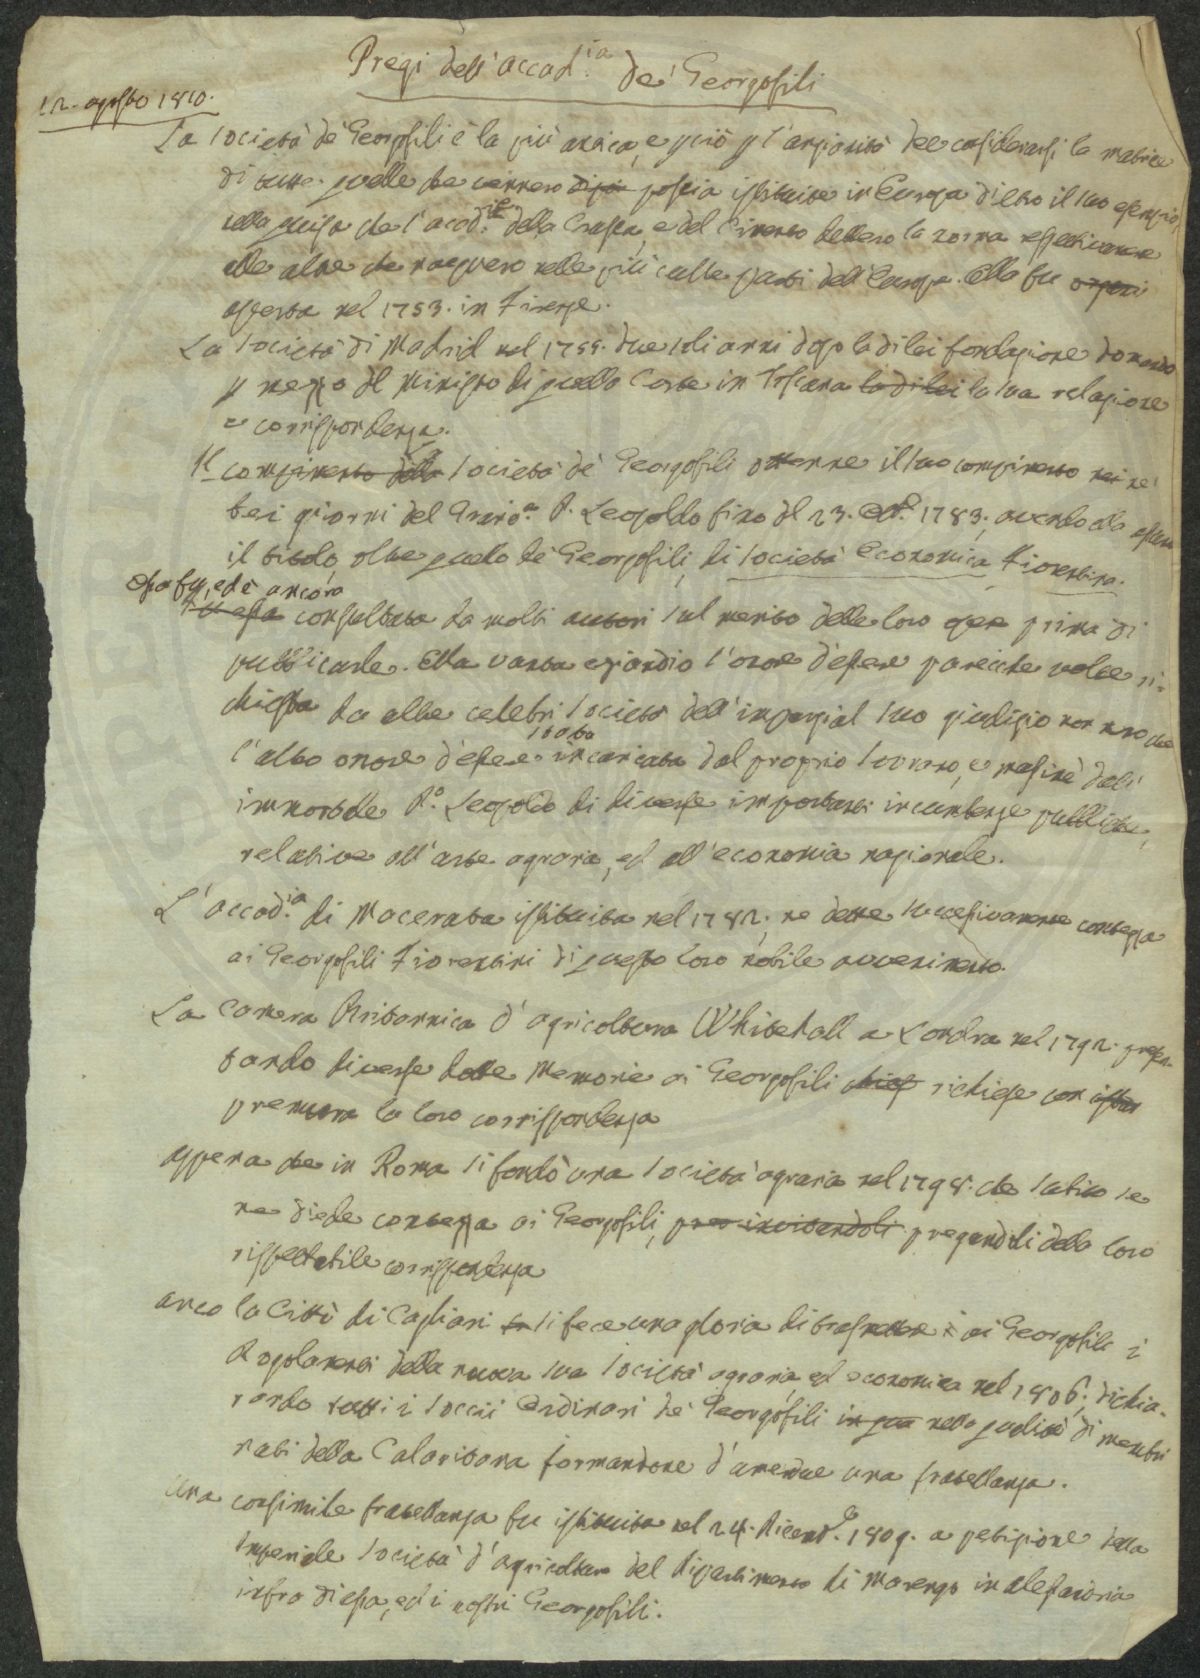 Pregi dell'accad.ia de' Georgofili
12. agosto 1810.
La società de' Georgofili è la più antica, e perciò p l'anziorità dee considerarsi la matrice
di tutte quelle che vennero dipoi poscia istituite in Europa dietro il suo esempio,
nella guisa che l'accad.ie della Crusca, e del Cimento dettero la norma rispettivamente
alle altre che nacquero nelle più culte parti dell'Europa. Ella fu
aperta nel 1753. in Firenze.
La società di Madrid nel 1755. due soli anni dopo la di lei fondazione domandò
p mezzo del Ministro di quella Corte in Toscana la di lei la sua relazione
e corrispondenza.
Il compimento della società de' Georgofili ottenne il suo compimento nei ne'
bei giorni del GranD.a P. Leopoldo fino del 23. 1783; avendo ella
il titolo, oltre quello de' Georgofili, di società Economica fiorentina.
Essa fu, ed è ancora
Fu essa consultata da molti autori sul merito delle loro opere prima di
pubblicarle. Ella vanta eziandio l'onore d'essere parecchie volte ri-
chiesta da altre celebri società dell'imparzial suo giudizio non meno che
stata
l'alto onore d'essere incaricata dal proprio sovrano, e massime dall'
immortale P.o Leopoldo di diverse importanti incumbenze pubbliche,
relative all'arte agraria, ed all'economia nazionale.
L'accad.ia di Macerata istituita nel 1782. ne dette successivamente contezza
ai Georgofili Fiorentini di questo loro nobile avvenimento.
La Camera Britannica d'agricoltura Whitehall a Londra nel 1792. presen-
tando diverse dotte Memorie ai Georgofili chiese richiese con
premura la loro corrispondenza
appena che in Roma si fondò una società agraria nel 1798. che subito se
ne diede contezza ai Georgofili, invitandoli pregandoli della loro
rispettabile corrispondenza
anco la Città di Cagliari si fece una gloria di trasmettere i ai Georgofili i
Regolamenti della nuova sua società agraria, ed economica nel 1806; dichia-
rando tutti i soccii Ordinari de' Georgofili nella qualità di membri
nati della Calaritana formandone d'amendue una fratellanza.
una consimile fratellanza fu istituita nel 24. Dicemb.e 1809. a petizione della
Imperiale società d'agricoltura del dipartimento di Marengo in alessandria
infra di essa, ed i nostri Georgofili.